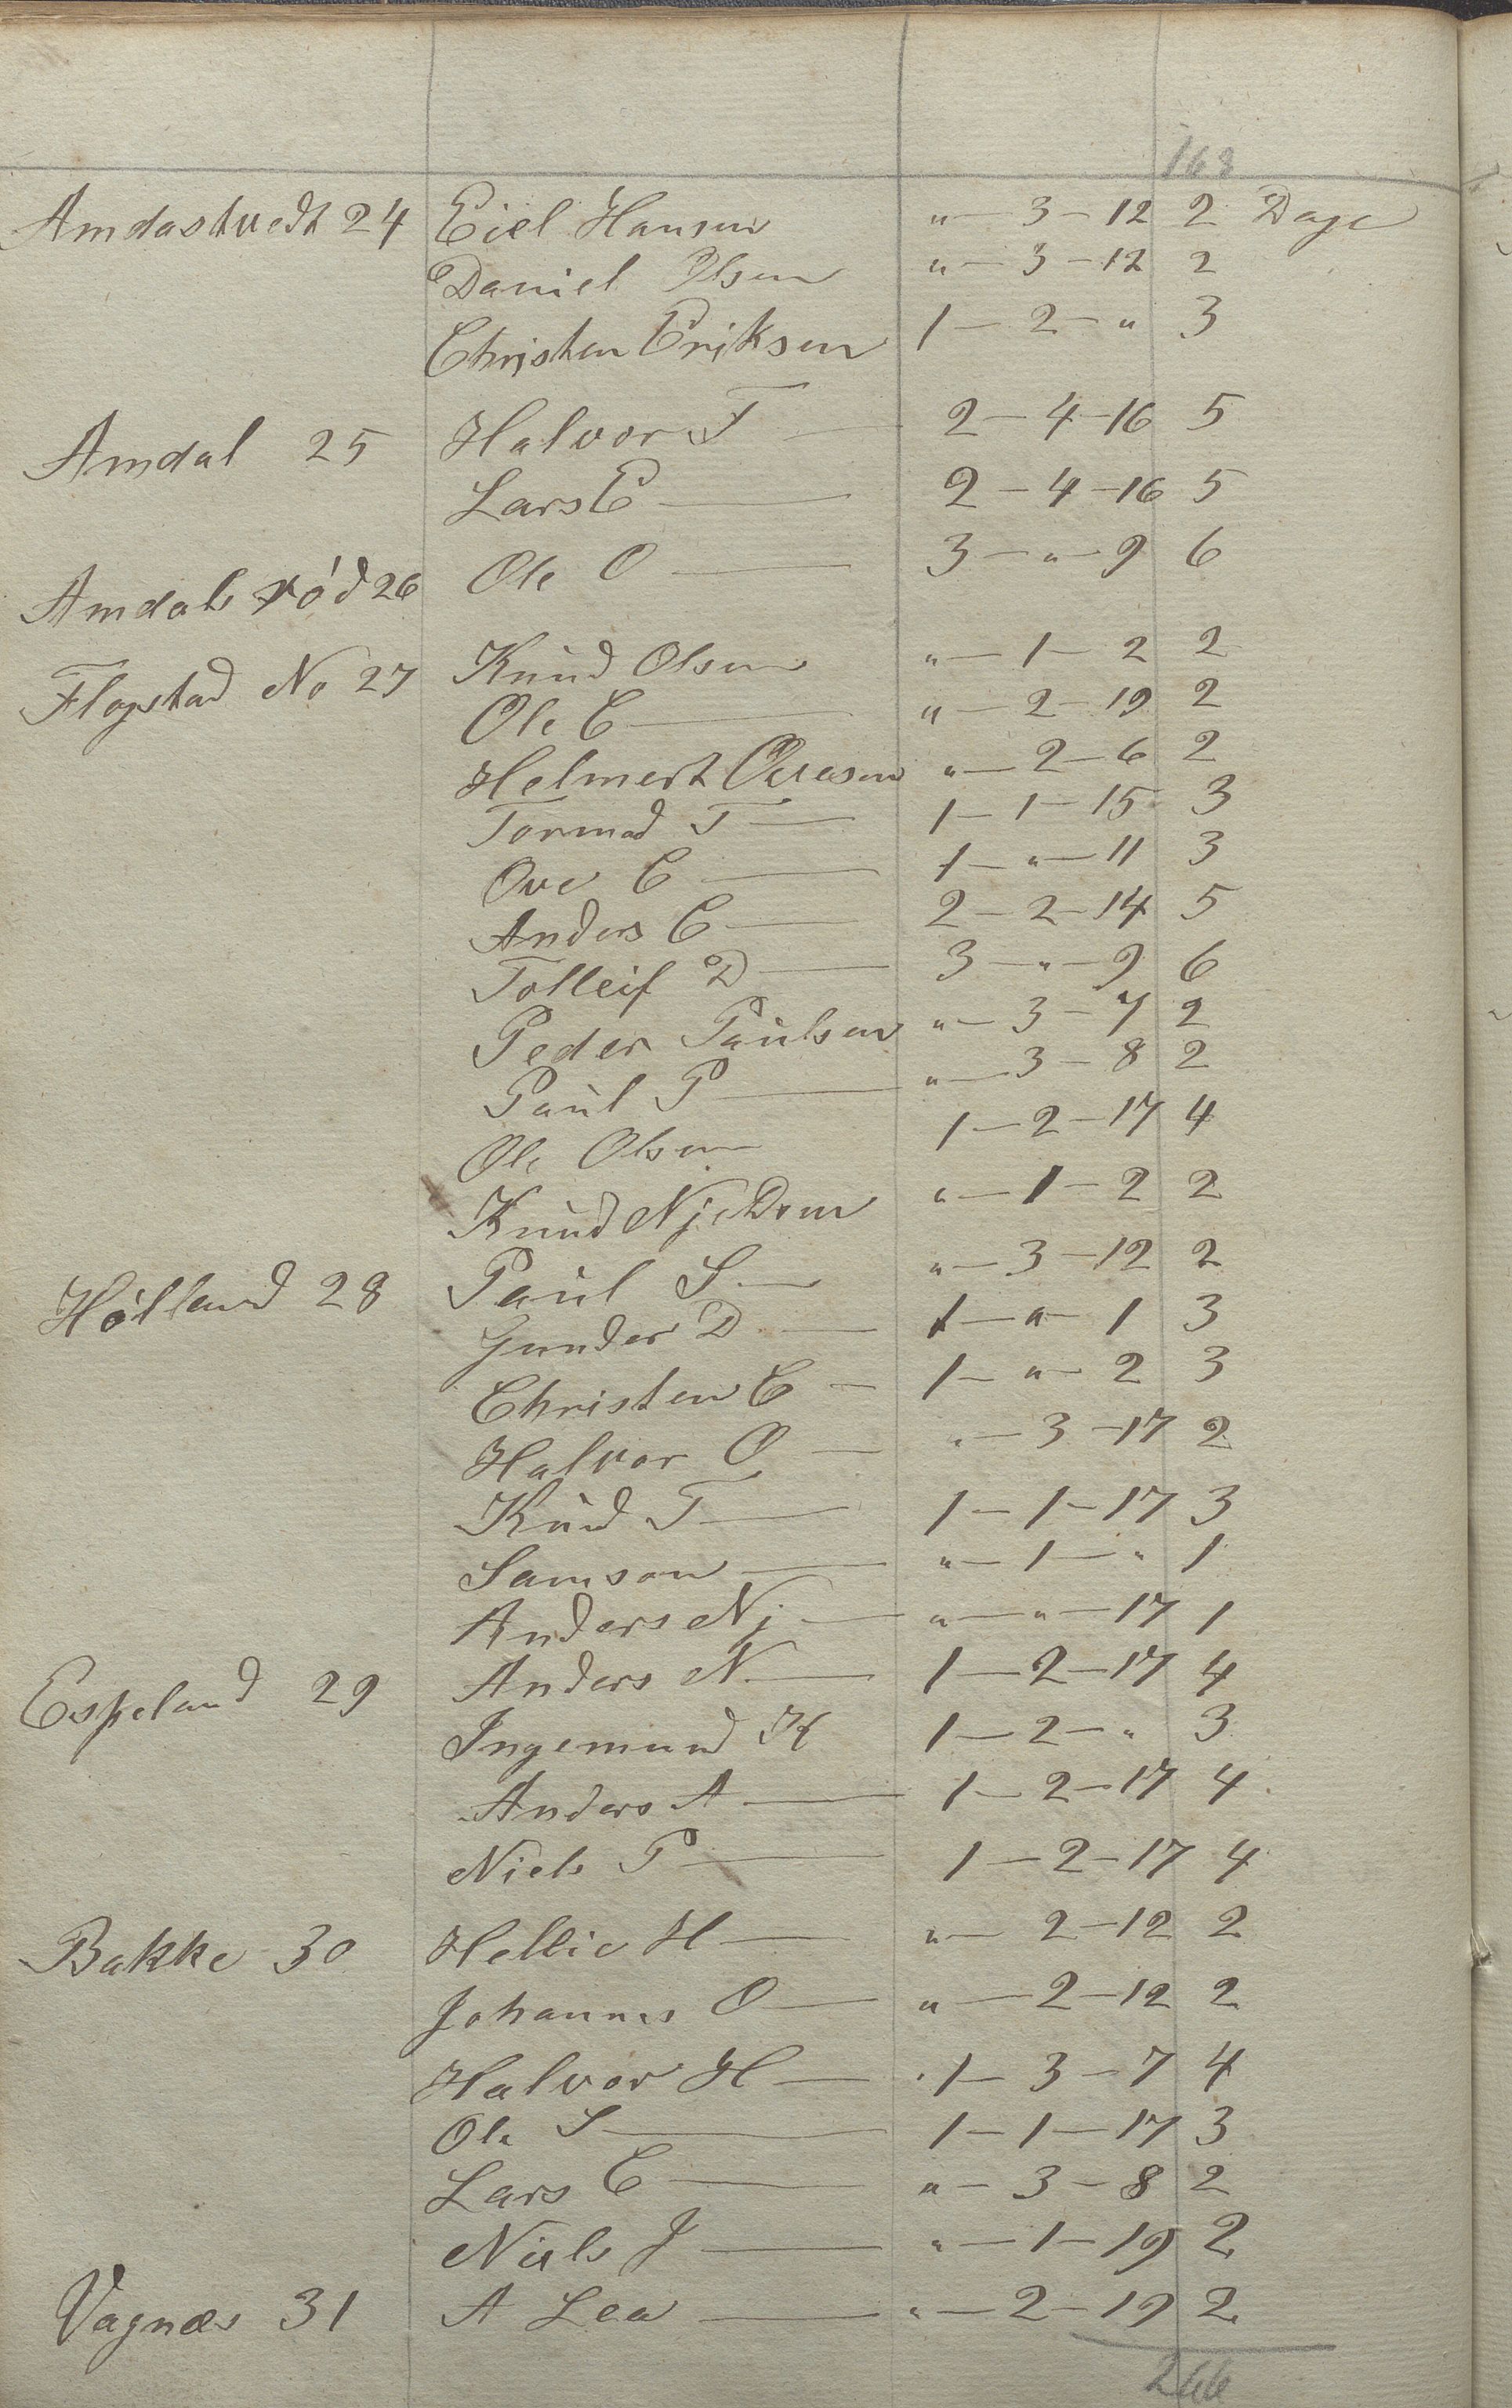 168
Amdastvedt 24 Eiel Hansen " - 3 - 12 2 Dage
Daniel Olsen " - 3 - 12 2
Christen Eriksen 1 - 2 - " 3
Amdal 25 Halvor T — 2 - 4 - 16 5
Lars E — 2 - 4 - 16 5
Amdals rød 26 Ole O — 3 - " - 9 6
Flagstad No 27 Knud Olsen " - 1 - 2 2
Ole C — " - 2 - 19 2
Helmert " - 2 - 6 2
Tormod T — 1 - 1 - 15 3
Ove C — 1 - " - 11 3
Anders C — 2 - 2 - 14 5
Tolleif D — 3 - " - 9 6
Peder Paulsen " - 3 - 7 2
Paul P — " - 3 - 8 2
Ole Olsen 1 - 2 - 17 4
Knud " - 1 - 2 2
Hølland 28 Paul S — " - 3 - 12 2
Gunder D — 1 - " - 1 3
Christen C — 1 - " - 2 3
Halvor O — " - 3 - 17 2
Knud T — 1 - 1 - 17 3
Samson — " - 1 - " 1
Anders Nj — " - " - 17 1
Espeland 29 Anders N — 1 - 2 - 17 4
Ingemund K 1 - 2 - " 3
Anders A — 1 - 2 - 17 4
Niels P — 1 - 2 - 17 4
Bakke 30 Hellie H — " - 2 - 12 2
Johannes O — " - 2 - 12 2
Halvor H — 1 - 3 - 7 4
Ole S — 1 - 1 - 17 3
Lars C — " - 3 - 8 2
Niels J — " - 1 - 19 2
Vagnæs 31 A Lea — " - 2 - 19 2
266